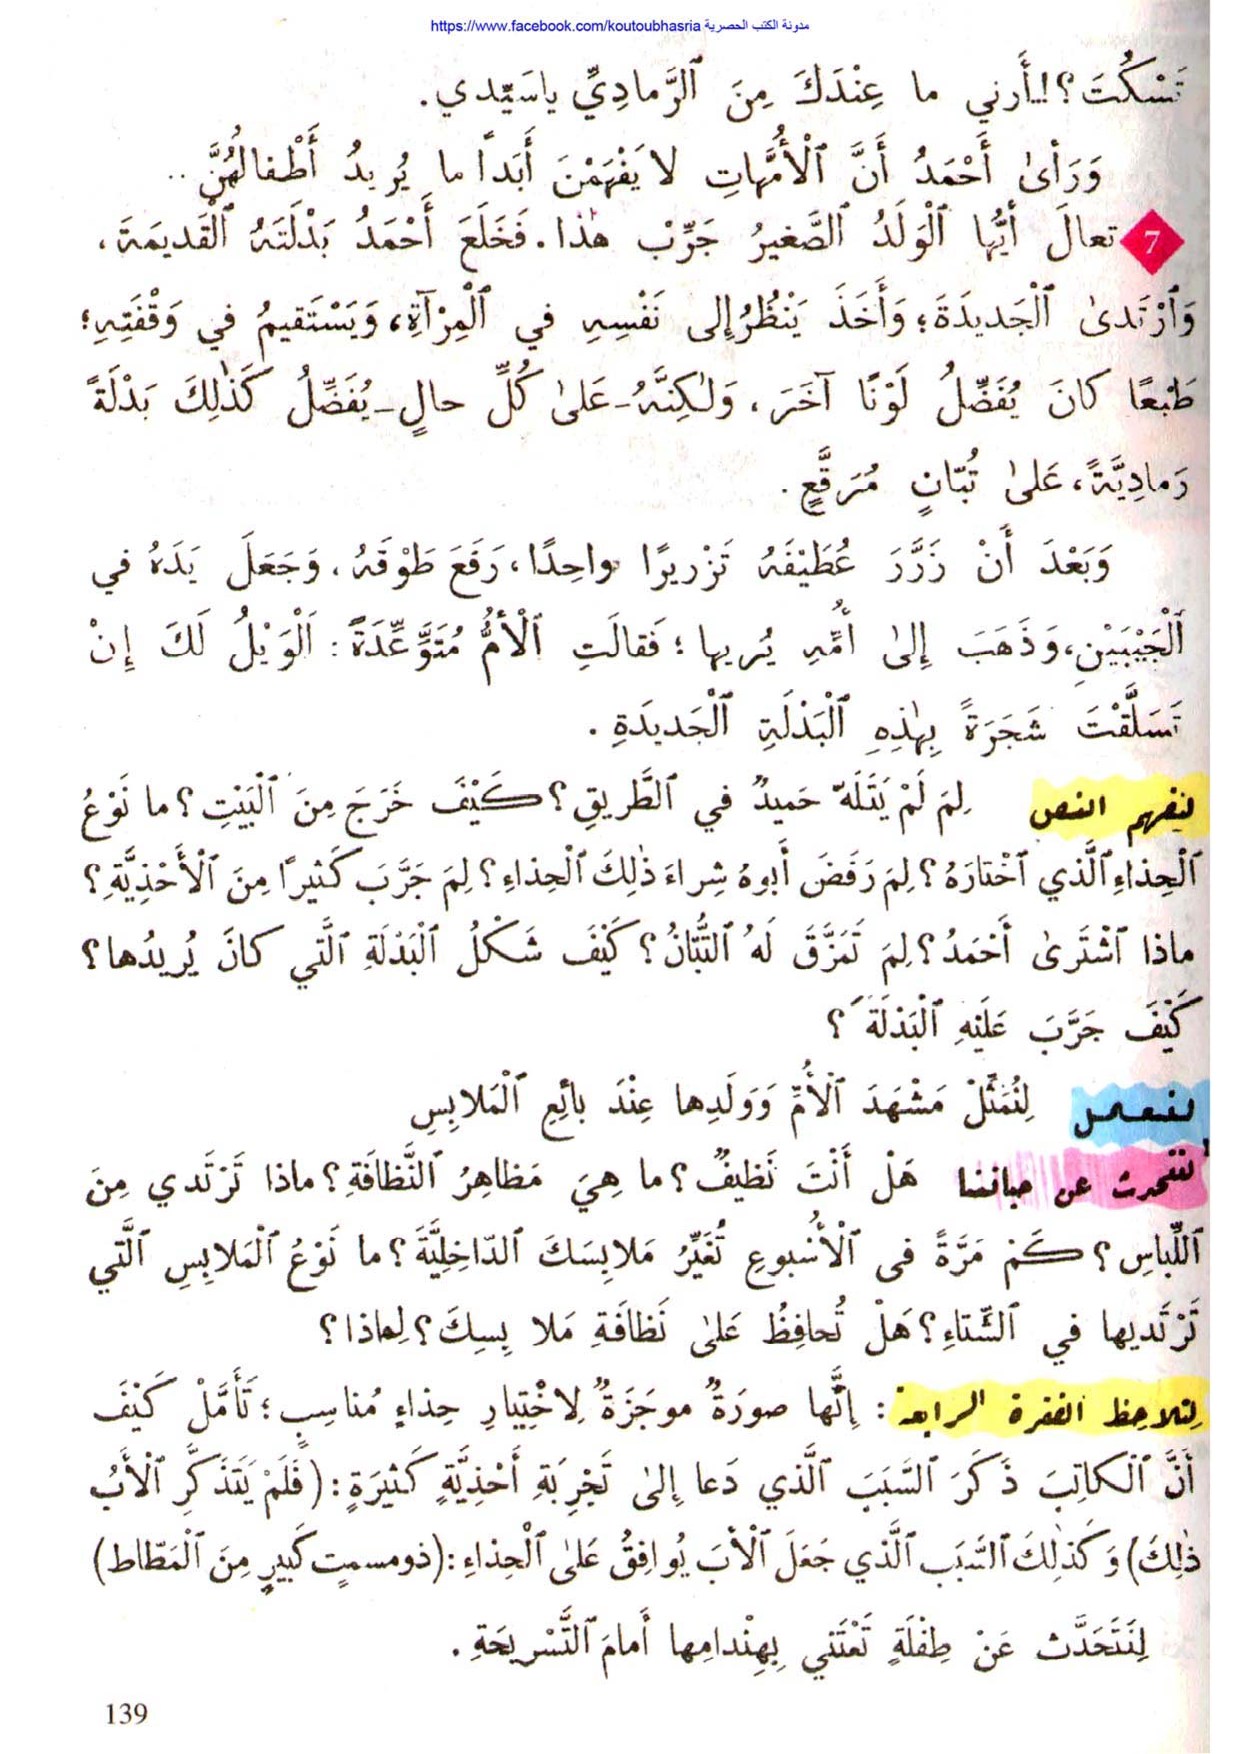 مدونة الكتب الحصرية https://www.facebook.com/koutoubhasria
تَسْكُتَ؟!..أَرِني ما عِنْدَكَ مِنَ ٱلرَّمادِيِّ ياسَيِّدي.
وَرَأىٰ أَحْمَدُ أَنَّ ٱلْأُمَّهاتِ لا يَفْهَمْنَ أَبَداً ما يُريدُ أَطْفالُهُنَّ ..
7 تعالَ أَيُّها ٱلْوَلَدُ ٱلصَّغيرُ جَرِّبْ هٰذا. فَخَلَعَ أَحْمَدُ بَدْلَتَهُ ٱلْقَديمَةَ،
وَٱرْتَدىٰ ٱلْجَديدَةَ؛ وَأَخَذَ يَنْظُرُ إِلى نَفْسِهِ في ٱلْمِرْآةِ، وَيَسْتَقيمُ في وَقْفَتِهِ؛
طَبْعًا كانَ يُفَضِّلُ لَوْنًا آخَرَ، وَلٰكِنَّهُ-عَلىٰ كُلِّ حالٍ-يُفَضِّلُ كَذٰلِكَ بَدْلَةً
رَمادِيَّةً، عَلىٰ تُبّانٍ مُرَقَّعٍ.
وَبَعْدَ أَنْ زَرَّرَ عُطَيْفَهُ تَزْريرًا واحِدًا، رَفَعَ طَوْقَهُ، وَجَعَلَ يَدَهُ في
ٱلْجَيْبَيْنِ، وَذَهَبَ إِلىٰ أُمِّهِ يُريها؛ فَقالَتِ ٱلْأُمُّ مُتَوَعِّدَةً: اَلْوَيْلُ لَكَ إِنْ
تَسَلَّقْتَ شَجَرَةً بِهٰذِهِ ٱلْبَدْلَةِ ٱلْجَديدَةِ.
لنفهم النص لِمَ لَمْ يَتَلَهَّ حَميدٌ في ٱلطَّريقِ؟ كَيْفَ خَرَجَ مِنَ ٱلْبَيْتِ؟ ما نَوْعُ
ٱلْحِذاءِ ٱلَّذي ٱخْتارَهُ؟ لِمَ رَفَضَ أَبوهُ شِراءَ ذٰلِكَ ٱلْحِذاءِ؟ لِمَ جَرَّبَ كَثيرًا مِنَ ٱلْأَحْذِيَّةِ؟
ماذا ٱشْتَرىٰ أَحْمَدُ؟ لِمَ تَمَزَّقَ لَهُ ٱلتُّبّانُ؟ كَيْفَ شَكْلُ ٱلْبَدْلَةِ ٱلَّتي كانَ يُريدُها؟
كَيْفَ جَرَّبَ عَلَيْهِ ٱلْبَدْلَةَ؟
لنعمل لِنُمَثِّلْ مَشْهَدَ ٱلْأُمِّ وَوَلَدِها عِنْدَ بائِعِ ٱلْمَلابِسِ
لنتحدث عن حياتنا هَلْ أَنْتَ نَظيفٌ؟ ما هِيَ مَظاهِرُ ٱلنَّظافَةِ؟ ماذا تَرْتَدي مِنَ
ٱللِّباسِ؟ كَمْ مَرَّةً في ٱلْأُسْبوعِ تُغَيِّرُ مَلابِسَكَ ٱلدّاخِلِيَّةَ؟ ما نَوْعُ ٱلْمَلابِسِ ٱلَّتي
تَرْتَديها في ٱلشِّتاءِ؟ هَلْ تُحافِظُ عَلىٰ نَظافَةِ مَلابِسِكَ؟ لِماذا؟
لِنلاحظ الفقرة الرابعة: إِنَّها صورَةٌ موجَزَةٌ لِاخْتِيارِ حِذاءٍ مُناسِبٍ؛ تَأَمَّلْ كَيْفَ
أَنَّ ٱلْكاتِبَ ذَكَرَ ٱلسَّبَبَ ٱلَّذي دَعا إِلىٰ تَجْرِبَةِ أَحْذِيَّةٍ كَثيرَةٍ: (فَلَمْ يَتَذَكَّرِ ٱلْأَبُ
ذٰلِكَ) وَكَذٰلِكَ ٱلسَّبَب ٱلَّذي جَعَلَ ٱلْأَبَ يُوافِقُ عَلىٰ ٱلْحِذاءِ: (ذومسمتٍ كَبيرٍ مِنَ ٱلْمَطّاط)
لِنَتَحَدَّث عَنْ طِفْلَةٍ تَعْتَني بِهِنْدامِها أَمامَ ٱلتَّسْريحَةِ.
139